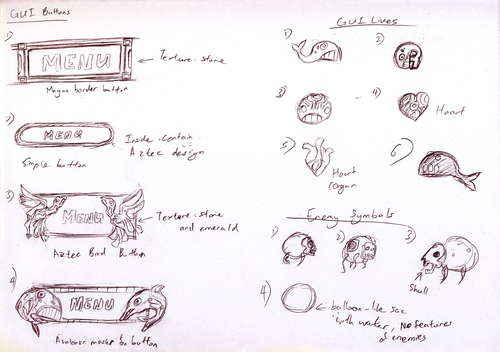 GUI Buttons
1)
MENU
Texture: stone
Mayan border button
2)
MENU
Simple button
Inside contain
Aztec design
3)
MENU
Texture: stone
and emerald
Aztec Bird Button
4)
MENU
mask button
GUI Lives
1)
2)
3)
4)
Heart
5)
Heart
organ
6)
Enemy Symbols
1)
2)
3)
Skull
4)
balloon-like sac
with water, No features
of enemies